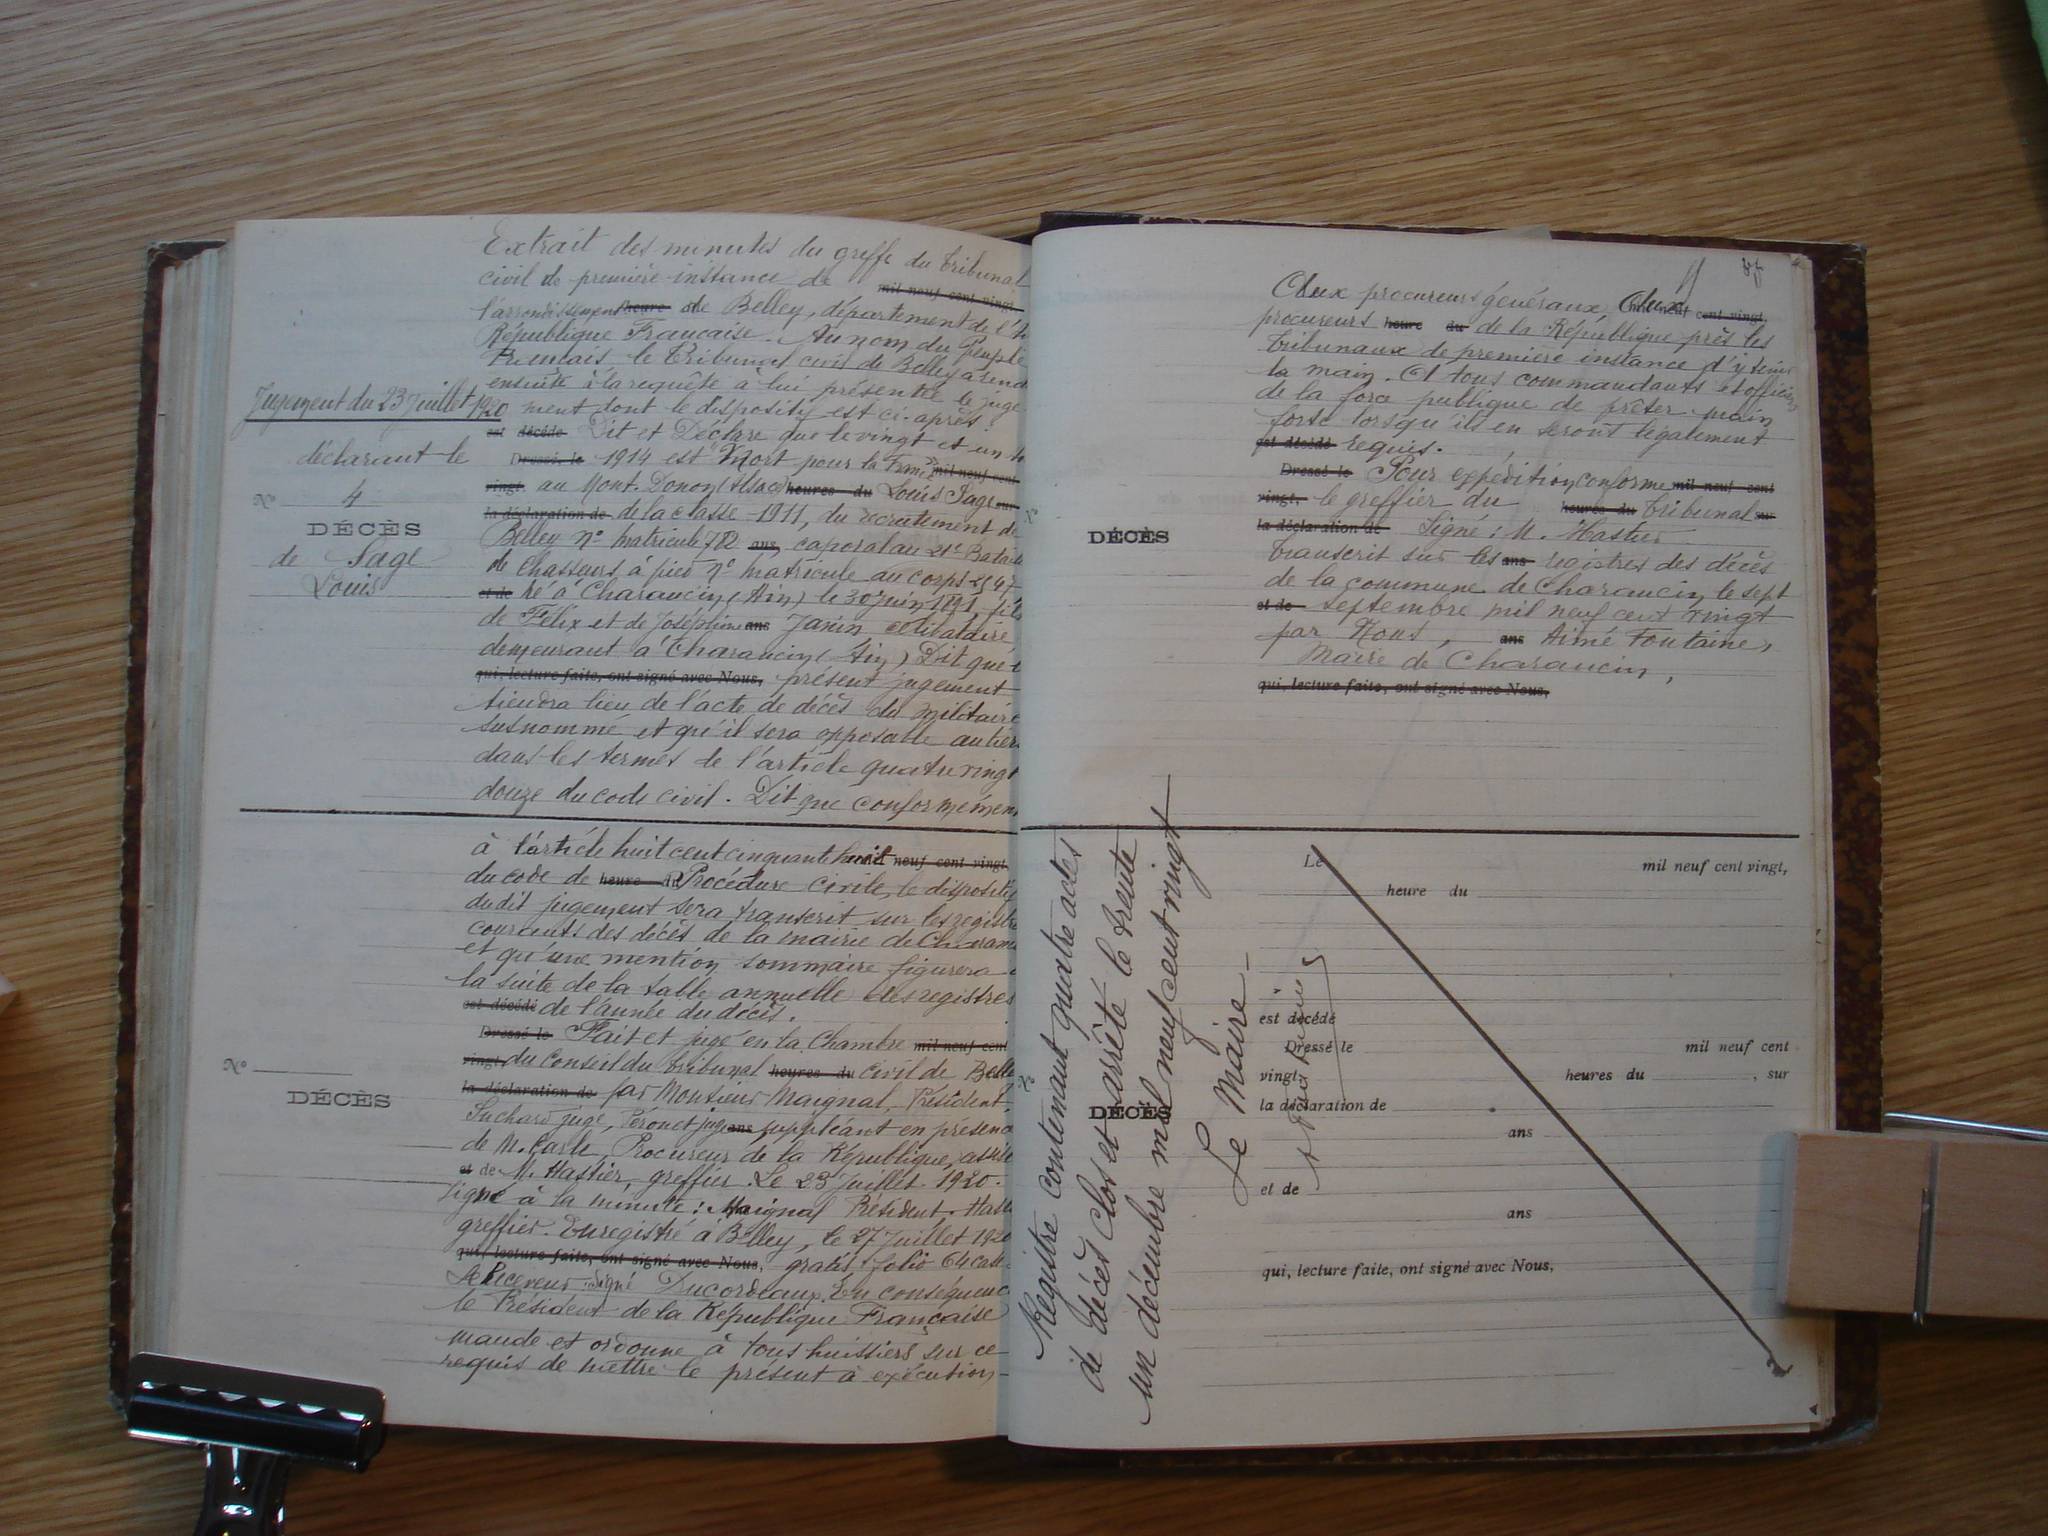 Extrait des minutes du greffe du tribunal
civil de première instance de mil neuf cent vingt,
l'arrondissement heure de Belley, département de l'A
République Française. Au nom du Peuple
Français le Tribunal civil de Belley a rend
ensuite à la requête à lui présentée le juge
Jugement du 23 juillet 1920
ment dont le dispositif est ci-après :
est décédé Dit et Déclare que le vingt et un
déclarant le
Dressé le 1914 est "Mort pour la France" mil neuf cent
vingt, au Mont. Donon (Alsace) heures du Louis Sage sur
N° 4
la déclaration de de la classe 1911, du recrutement de
DÉCÈS
Belley n° matricule 782 ans, caporal au 21e Batail
de Sage
de Chasseurs à pied n° matricule au corps 2547
Louis
et de né à Charancin (Ain) le 30 juin 1891, fils
de Félix et de Joséphine ans Janin célibataire
demeurant à Charancin (Ain) Dit que l
qui, lecture faite, ont signé avec Nous, présent jugement
tiendra lieu de l'acte de décès du militaire
susnommé et qu'il sera opposable au tiers
dans les termes de l'article quatre vingt
douze du code civil. Dit que conformémen
à l'article huit cent cinquante huit neuf cent vingt,
du code de heure du Procédure civile, le dispositif
dudit jugement sera transcrit sur les registre
courants des décès de la mairie de Charan
et qu'une mention sommaire figurera
la suite de la table annuelle des registres
est décédé de l'année du décès.
Dressé le Fait et jugé en la Chambre mil neuf cent
vingt, du Conseil du tribunal heures du civil de Belle
N°
la déclaration de par Monsieur Maignal, Président,
DÉCÈS
Suchard juge, Péronet juge ans suppléant en présenc
de M. Carle, Procureur de la République, assis
et de M. Hastier, greffier. Le 23 juillet 1920.
Signé à la minute : Maignal Président. Hast
greffier. Enregistré à Belley, le 27 Juillet 1920
qui, lecture faite, ont signé avec Nous, gratis folio 64 case
Le Receveur signé Ducordeaux. En conséquenc
le Président de la République Française
mande et ordonne à tous huissiers sur ce
requis de mettre le présent à exécution
Aux procureurs généraux, Aux neuf cent vingt,
procureurs heure du de la République près les
tribunaux de première instance d'y tenir
la main. Et tous commandants et officiers
de la force publique de prêter main
forte lorsqu'ils en seront légalement
est décédé requis.
Dressé le Pour expédition conforme mil neuf cent
vingt, le greffier du heures du tribunal sur
la déclaration de Signé : M. Hastier
DÉCÈS
transcrit sur les ans registres des décès
de la commune de Charancin le sept
et de septembre mil neuf cent vingt
par Nous, ans Aimé Fontaine,
Maire de Charancin,
qui, lecture faite, ont signé avec Nous,
Registre contenant quatre actes
de décès clos et arrêté le trente
un décembre mil neuf cent vingt
Le Maire
Le mil neuf cent vingt,
heure du
est décédé
Dressé le mil neuf cent
vingt, heures du , sur
la déclaration de
DÉCÈS
ans
et de
ans
qui, lecture faite, ont signé avec Nous,